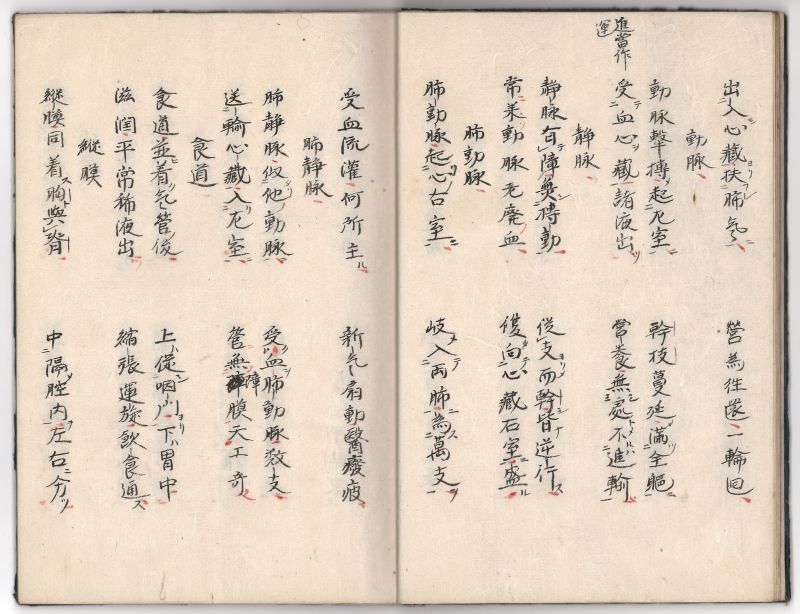 進當作
運
出入心藏扶肺氣
營為往還一輪回
動脉
動脉擊搏起左室
幹枝蔓延滿全軀
受血心藏諸液出
營養無處不進輸
靜脉
靜脉有障奠搏動
從支而幹皆逆行
常柔動脉老廢血
復向心藏右室盛
肺動脉
肺動脉起心右室
岐入兩肺為萬支
受血流灌何所主
新氣扇動醫癈疲
肺靜脉
肺靜脉似他動脉
受血肺動脉數支
送輸心藏入左室
管無障膜天工奇
食道
食道並着氣管後
上從咽門下胃中
滋潤平常稀液出
縮張運旋飲食通
縱膜
縱膜同着胸與脊
中隔腔内左右分